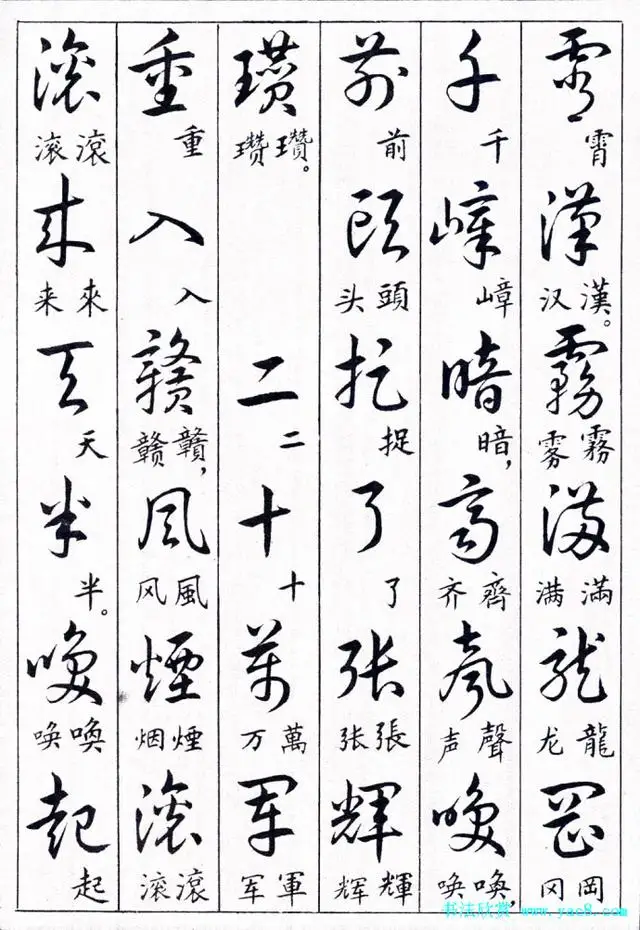 霄 霄 漢 漢。汉 霧 霧 雾 滿 滿 满 龍 龍 龙 岡 岡 冈
千 千 嶂 嶂 暗 暗, 齊 齊 齐 聲 聲 声 喚 喚, 唤
前 前 頭 頭 头 捉 捉 了 了 張 張 张 輝 輝 辉
瓚 瓚。瓒 二 二 十 十 萬 萬 万 軍 軍 军
重 重 入 入 贛 贛, 赣 風 風 风 煙 煙 烟 滾 滾 滚
滾 滾 滚 來 來 来 天 天 半 半。 喚 喚 唤 起 起
书法欣赏 www.yac8.com